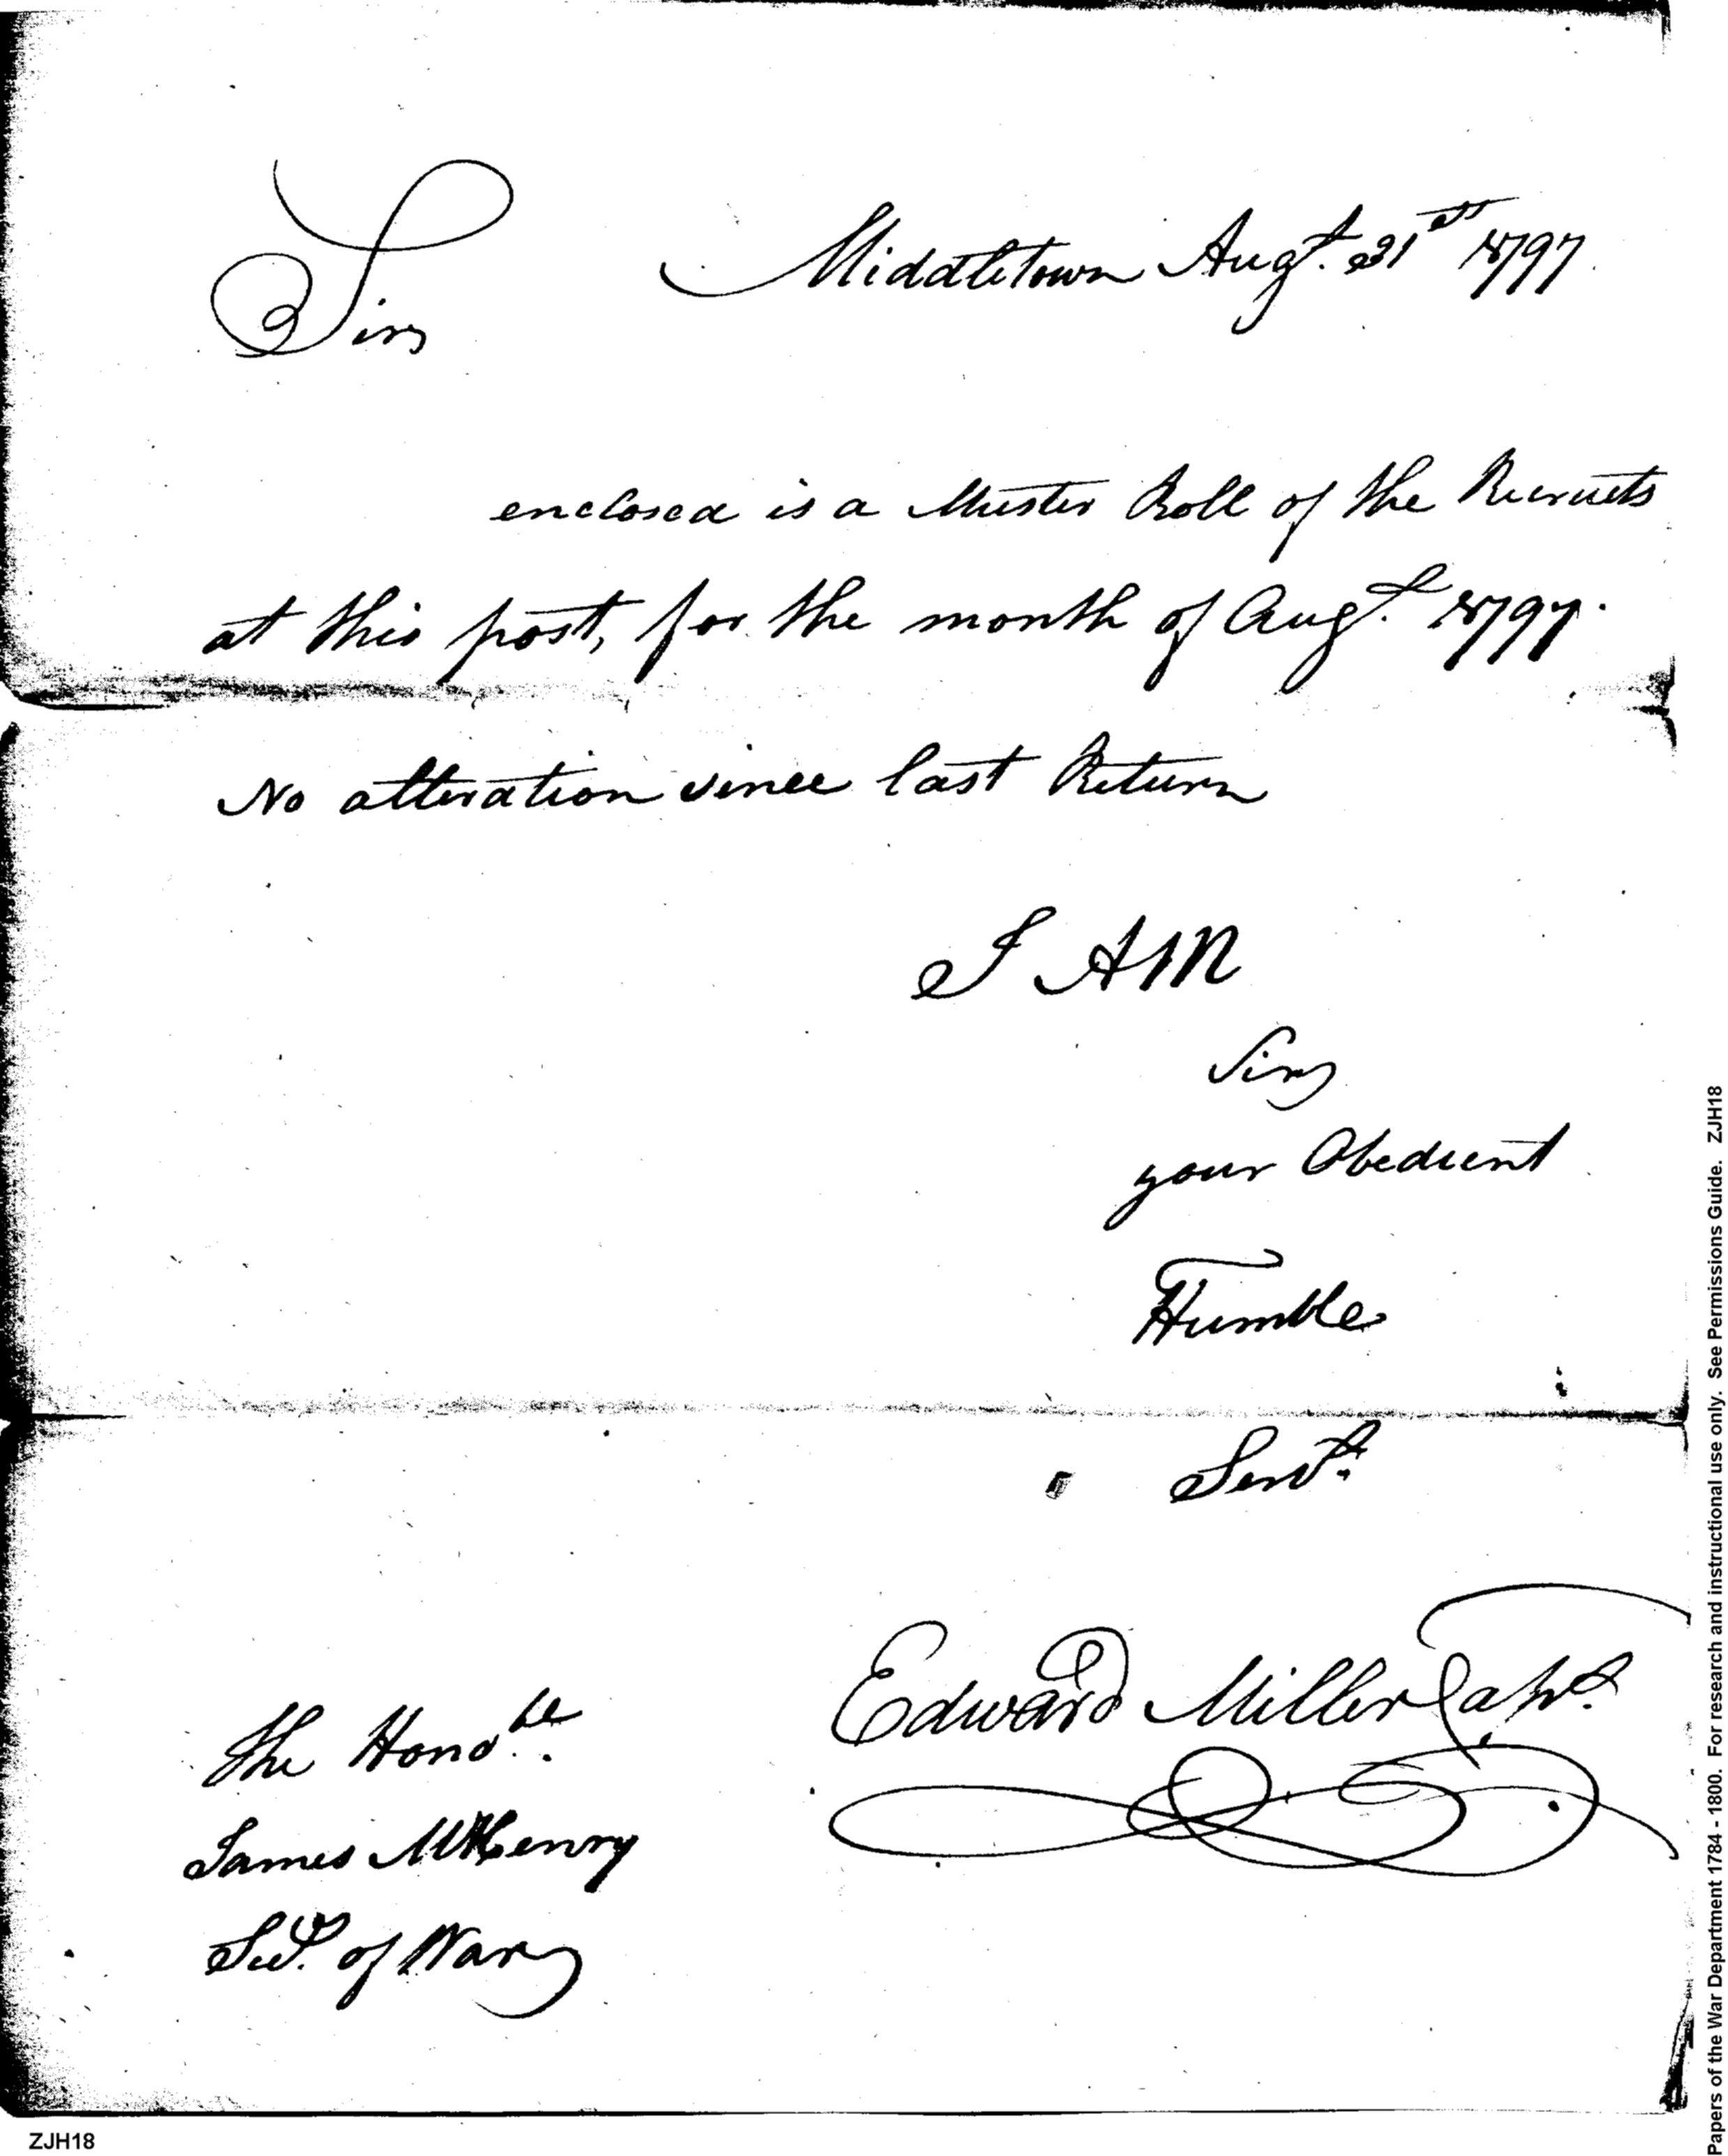 Sir
Middletown Augt. 31st 1797.
enclosed is a Muster Roll of the Recruits
at this post, for the month of Augt. 1797.
No alteration since last Return
I AM
Sir
your Obedient
Humble
Servt.
Edward Miller Capt.
the Honoble.
James McHenry
Secy. of War
ZJH18
Papers of the War Department 1784 - 1800. For research and instructional use only. See Permissions Guide. ZJH18